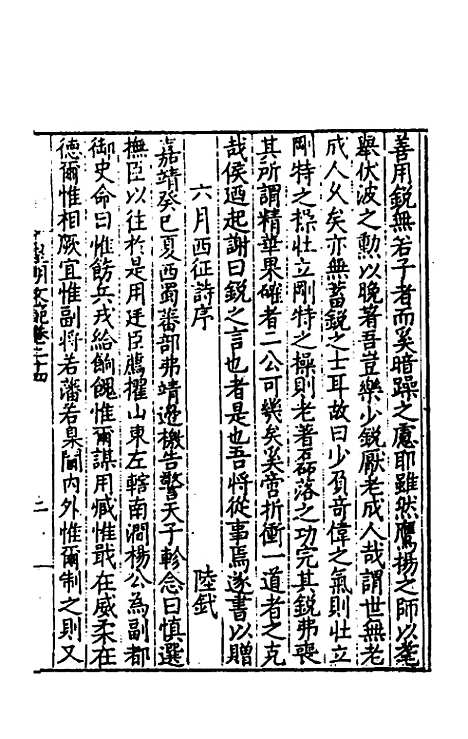 善用銳無若子者而奚暗躁之慮耶雖然鷹揚之師以耄
舉伏波之勲以晚著吾豈樂少銳厭老成人哉謂世無老
成人乆矣亦無蓄銳之士耳故曰少負竒偉之氣則壮立
剛特之操壮立剛特之操則老著磊落之功完其銳弗喪
其所謂精華果確者二公可㡬矣奚啻折衝一道者之克
哉侯迺起謝曰銳之言也者是也吾將從事焉遂書以贈
六月西征詩序 陸釴
嘉靖癸巳夏西蜀蕃部弗靖邊檄告警天子軫念曰慎選
撫臣以往於是用廷臣薦擢山東左轄南澗楊公為副都
御史命曰惟飭兵戎給餉餽惟爾謀用臧惟戢在威柔在
德爾惟相厥宜惟副將若藩若臬閫内外惟爾制之則又
皇明文範卷二十四
二